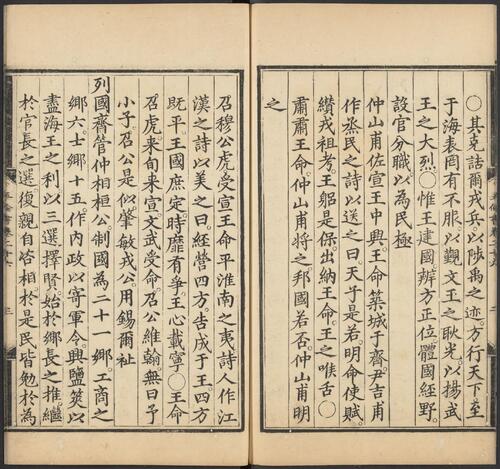 〇其克詰爾戎兵以陟禹之迹方行天下至
于海表罔有不服以觀文王之耿光以揚武
王之大烈〇惟王建國辨方正位體國經野
設官分職以為民極
仲山甫佐宣王中興王命築城于齊尹吉甫
作烝民之詩以送之曰天子是若明命使賦
纘戎祖考王躬是保出納王命王之喉舌〇
肅肅王命仲山甫將之邦國若否仲山甫明
之
召穆公虎受宣王命平淮南之夷詩人作江
漢之詩以美之曰經營四方告成于王四方
既平王國庶定時靡有爭王心載寧〇王命
召虎來旬來宣文武受命召公維翰無曰予
小子召公是似肇敏戎公用錫爾祉
列國齊管仲相桓公制國為二十一鄉工商之
鄉六士鄉十五作內政以寄軍令興鹽筴以
盡海王之利以三選擇賢始於鄉長之推繼
於官長之選復親自咨相於是民皆勉於為